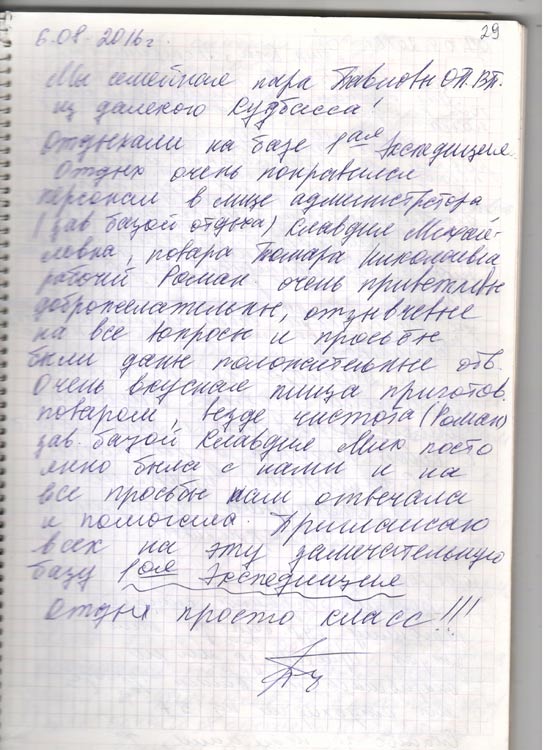 29
6.08.2016г.
Мы семейная пара Павловы О.П. В.П.
из далекого Кузбасса!
Отдыхали на базе 1ая Экспедиция.
Отдых очень понравился
персонал в лице администратора
(зав базой отдыха) Клавдия Михай-
ловна, повара Тамара Николаевна
рабочий Роман очень приветливы
доброжелательны, отзывчевые
на все вопросы и просьбы
были даны положительные отв.
Очень вкусная пища приготов.
поваром, везде чистота (Роман)
зав. базой Клавдия Мих посто
янно была с нами и на
все просьбы нам отвечала
и помогала. Приглашаю
всех на эту замечательную
базу 1ая Экспедиция
Отдых просто класс!!!